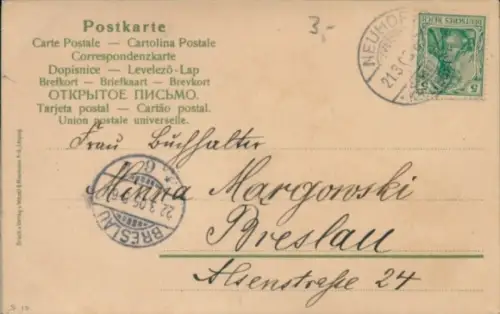 Postkarte
3,-
Carte Postale — Cartolina Postale
Correspondenzkarte
Dopisnice — Levelező-Lap
Brefkort — Briefkaart — Brevkort
ОТКРЫТОЕ ПИСЬМО.
Tarjeta postal — Cartão postal.
Union postale universelle.
NEUHOF
21.3.0
Frau Buchhalter
Minna Margowski
Breslau
Alsenstraße 24
BRESLAU
22.3.06